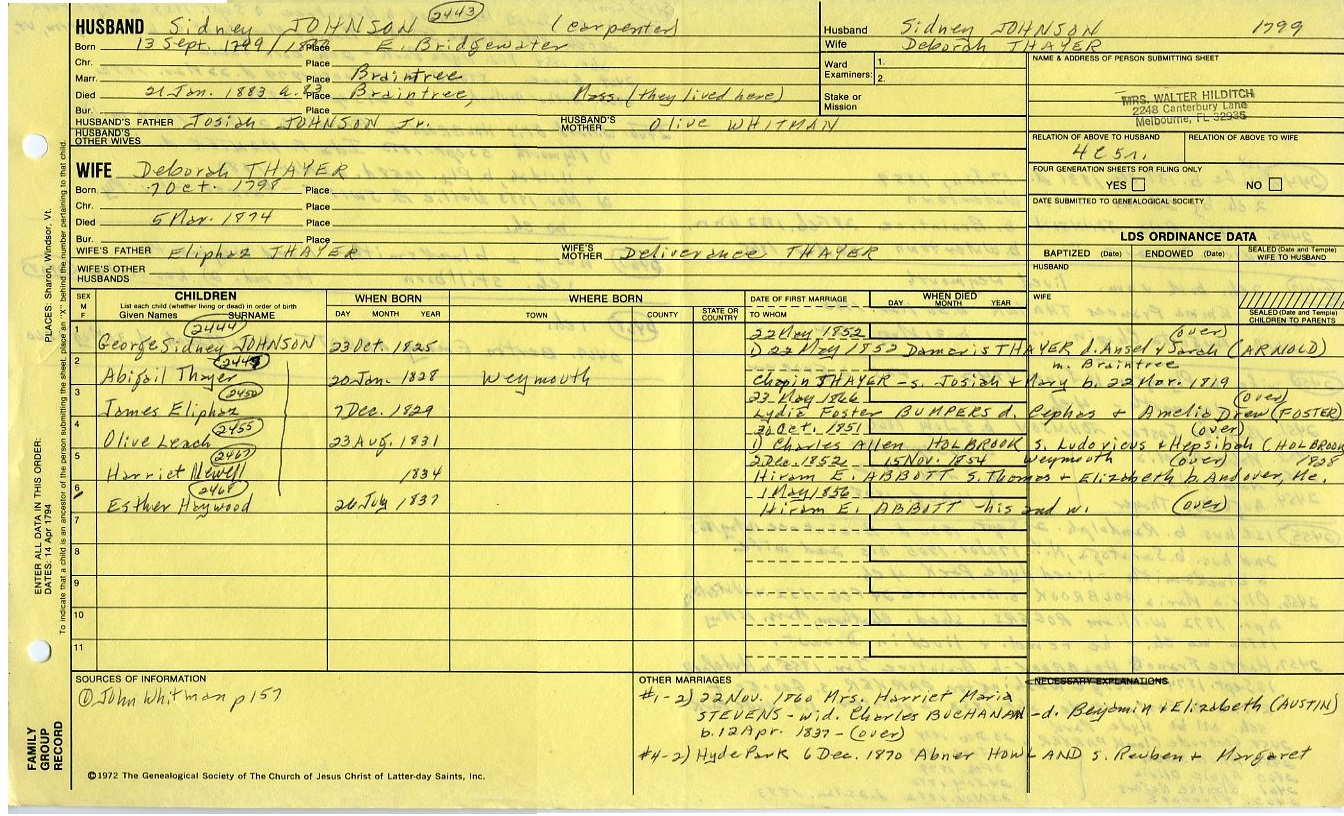 HUSBAND Sidney JOHNSON 2443 (carpenter)
Born 13 Sept. 1799 / Place E. Bridgewater
Chr. Place
Marr. Place Braintree
Died 21 Jan. 1883 a. 83 Place Braintree, Mass (they lived here)
Bur. Place
HUSBAND'S FATHER Josiah JOHNSON Jr. HUSBAND'S MOTHER Olive WHITMAN
HUSBAND'S OTHER WIVES
Husband Sidney JOHNSON 1799
Wife Deborah THAYER
Ward Examiners: 1.
2.
Stake or Mission
NAME & ADDRESS OF PERSON SUBMITTING SHEET
MRS. WALTER HILDITCH
2248 Canterbury Lane
Melbourne, FL 32935
RELATION OF ABOVE TO HUSBAND RELATION OF ABOVE TO WIFE
4C5r.
FOUR GENERATION SHEETS FOR FILING ONLY
YES NO
DATE SUBMITTED TO GENEALOGICAL SOCIETY
WIFE Deborah THAYER
Born 7 Oct. 1798 Place
Chr. Place
Died 5 Mar. 1874 Place
Bur. Place
WIFE'S FATHER Eliphaz THAYER WIFE'S MOTHER Deliverance THAYER
WIFE'S OTHER HUSBANDS
LDS ORDINANCE DATA
BAPTIZED (Date) ENDOWED (Date) SEALED (Date and Temple) WIFE TO HUSBAND
HUSBAND
WIFE
SEALED (Date and Temple) CHILDREN TO PARENTS
SEX M F CHILDREN WHEN BORN WHERE BORN DATE OF FIRST MARRIAGE WHEN DIED
List each child (whether living or dead) in order of birth
Given Names SURNAME DAY MONTH YEAR TOWN COUNTY STATE OR COUNTRY TO WHOM DAY MONTH YEAR
1 2444 22 May 1852 (over)
George Sidney JOHNSON 23 Oct. 1825 1) 22 May 1852 Damaris THAYER d. Ansel & Sarah (ARNOLD)
2 2449 m. Braintree
Abigail Thayer 20 Jan. 1828 Weymouth Chapin THAYER - s. Josiah + Mary b. 22 Mar. 1819
3 2450 23 May 1866 (over)
James Eliphaz 7 Dec. 1829 Lydia Foster BUMPERS d. Cephas + Amelia Drew (FOSTER)
4 2455 30 Oct. 1851 (over)
Olive Leach 23 Aug. 1831 1) Charles Allen HOLBROOK s. Ludovicus + Hepsibah (HOLBROOK
5 2467 2 Dec. 1852 15 Nov. 1854 Weymouth (over) 1828
Harriet Newell 1834 Hiram E. ABBOTT s. Thomas + Elizabeth b. Andover, Me.
6 2468 1 May 1856
Esther Haywood 26 July 1837 Hiram E. ABBOTT - his 2nd w. (over)
7
8
9
10
11
SOURCES OF INFORMATION
① John Whitman p 157
OTHER MARRIAGES
#1-2) 22 Nov. 1860 Mrs. Harriet Maria
STEVENS - wid. Charles BUCHANAN - d. Benjamin + Elizabeth (AUSTIN)
b. 12 Apr. 1837 - (over)
#4-2) Hyde Park 6 Dec. 1870 Abner HOWLAND s. Reuben + Margaret
NECESSARY EXPLANATIONS
©1972 The Genealogical Society of The Church of Jesus Christ of Latter-day Saints, Inc.
PLACES: Sharon, Windsor, Vt.
ENTER ALL DATA IN THIS ORDER:
DATES: 14 Apr 1794
To indicate that a child is an ancestor of the person submitting the sheet, place an "X" behind the number pertaining to that child.
FAMILY GROUP RECORD